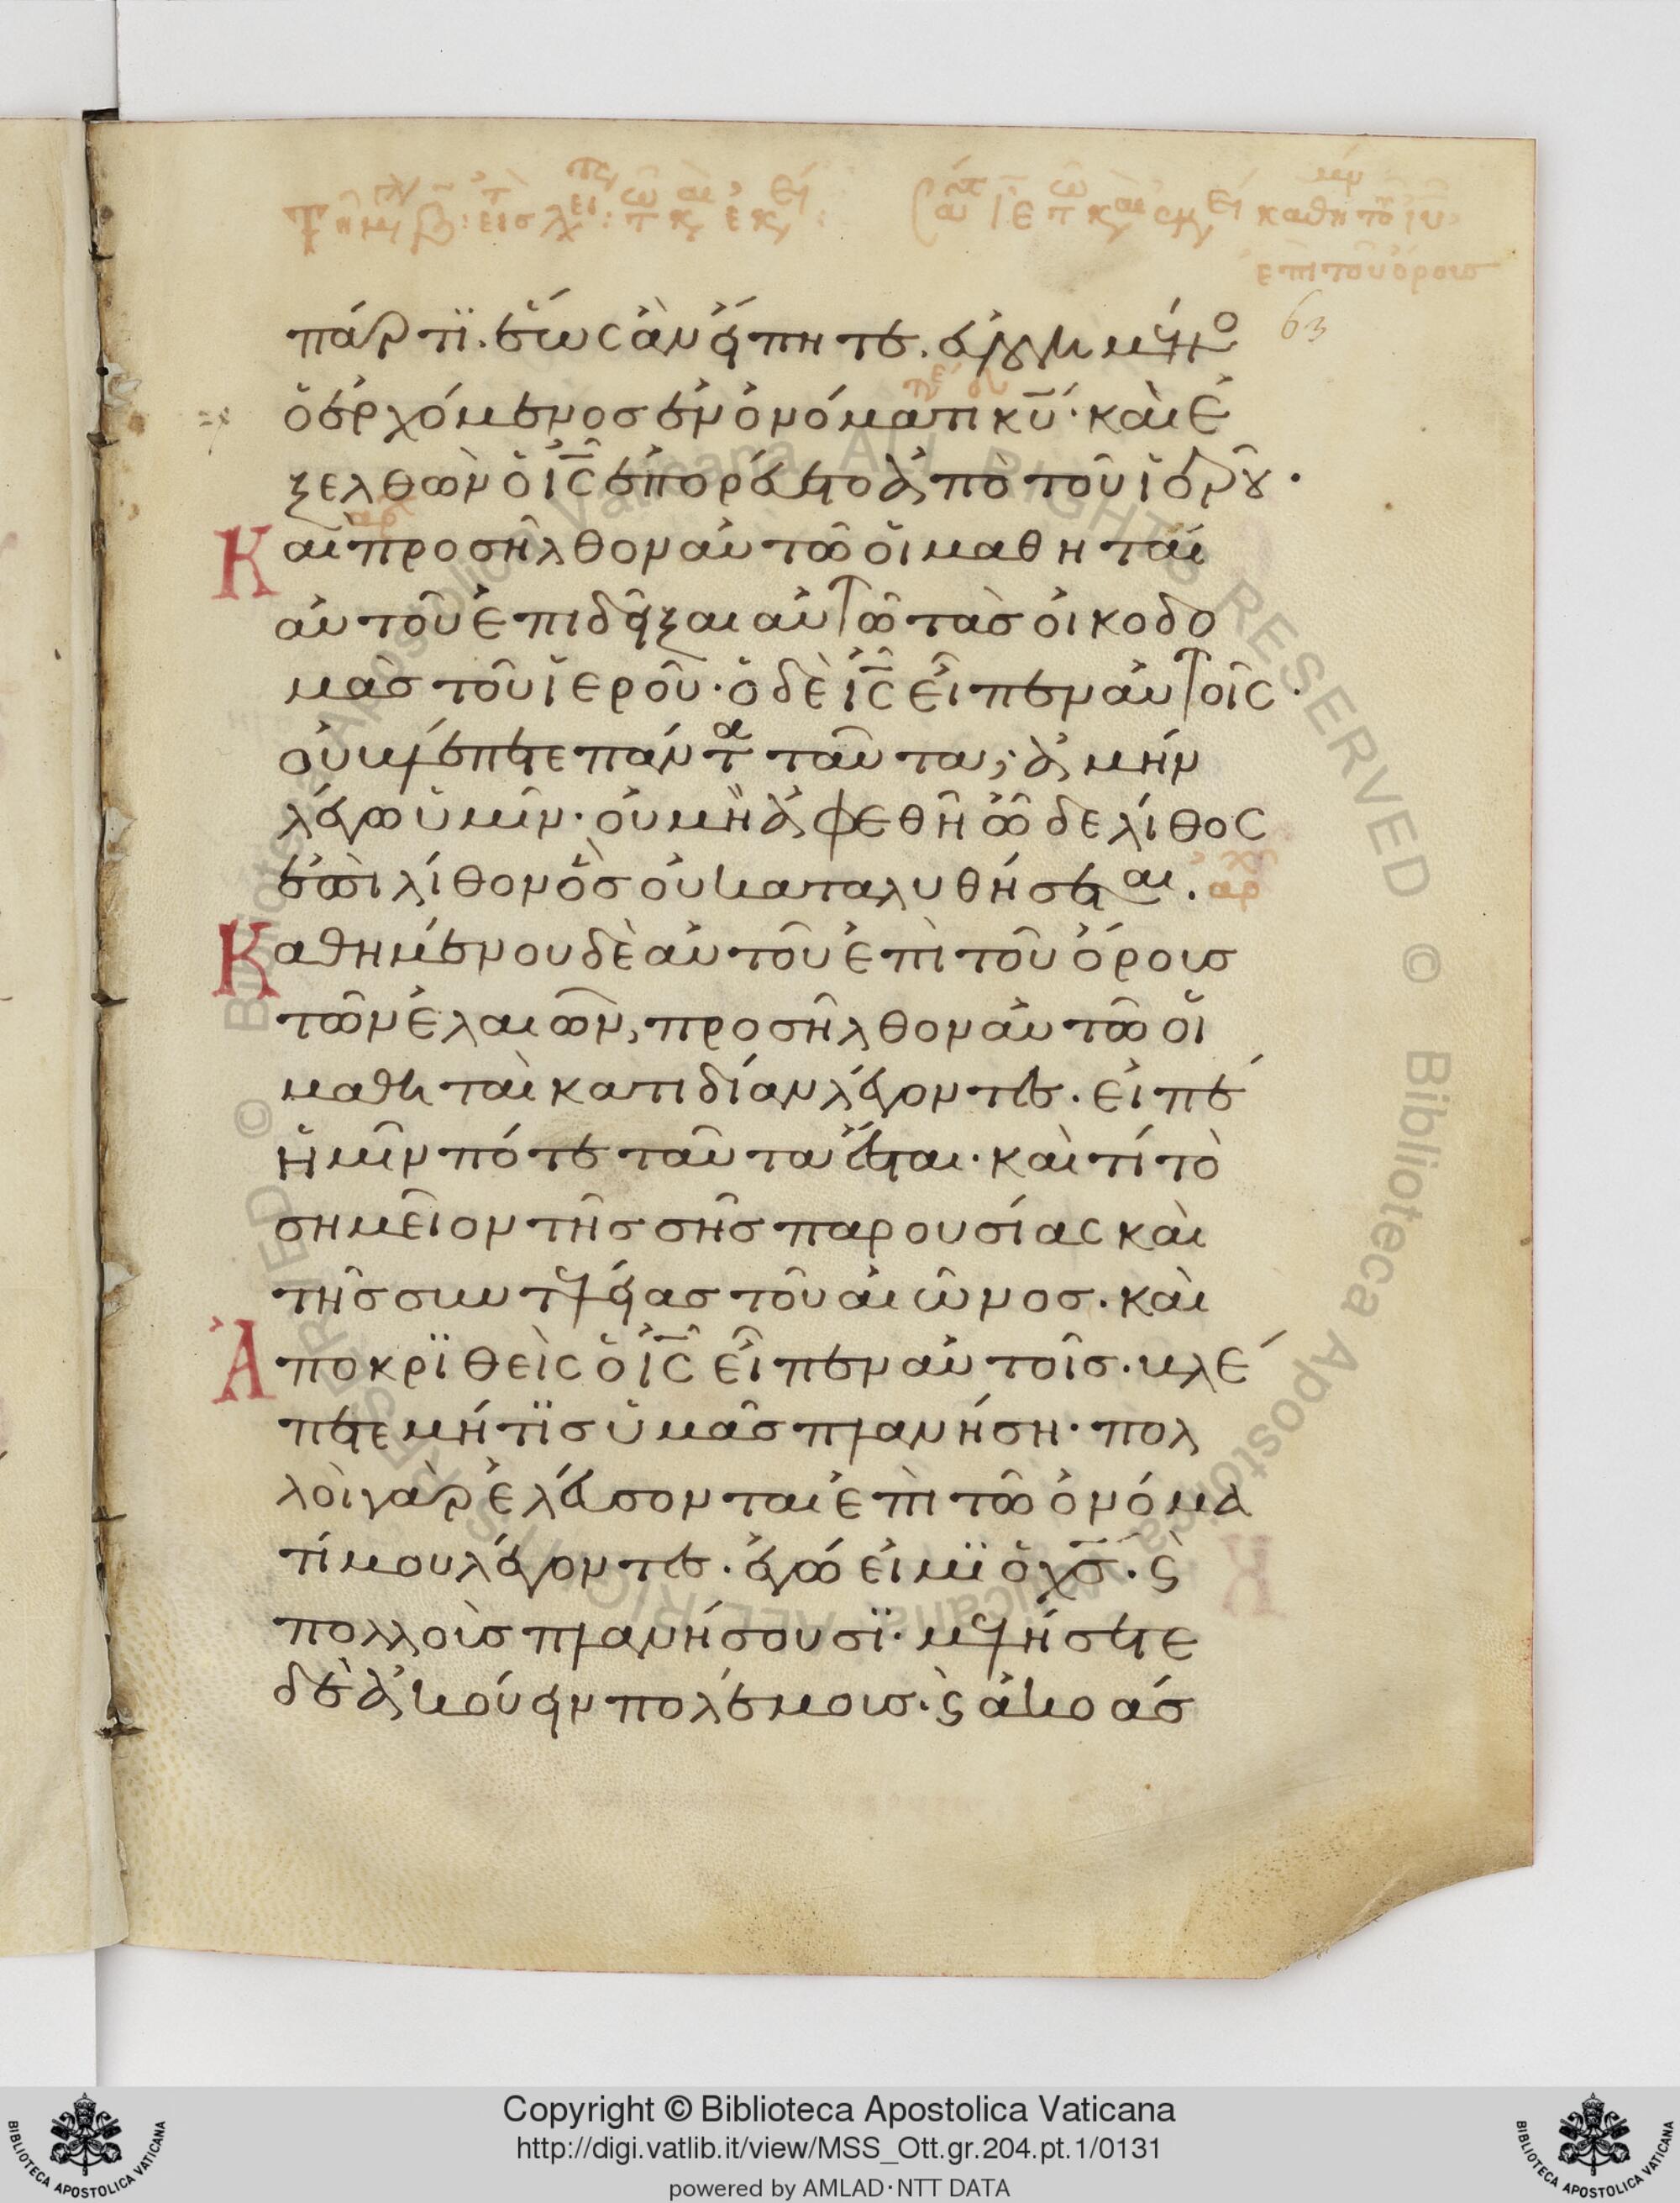 πάρτϊ. ἕως ἂν εἴπητε. εὐλογημένο
ὁ ἐρχόμενος ἐν ὀνόματι κυ̅· καὶ ἐ
ξελθὼν ὁ ις̅ ἐπορεύετο ἀπὸ τοῦ ἱεροῦ·
Καὶ προσῆλθον αὐτῶ οἱ μαθηταὶ
αὐτοῦ ἐπιδεῖξαι αὐτῶ τὰς οἰκοδο
μὰς τοῦ ἱεροῦ· ὁ δὲ ις̅ εἶπεν αὐτοῖς·
οὐ βλέπετε πάντα ταῦτα; ἀμὴν
λέγω ὑμῖν· οὐ μὴ ἀφεθῆ ὧδε λίθος
ἐπὶ λίθον ὃς οὐ καταλυθήσεται.
Καθημένου δὲ αὐτοῦ ἐπὶ τοῦ ὄρους
τῶν ἐλαιῶν, προσῆλθον αὐτῶ οἱ
μαθηταὶ κατιδίαν λέγοντες· εἰπὲ
ἡμῖν πότε ταῦτα ἔσται· καὶ τί τὸ
σημεῖον τῆς σῆς παρουσίας καὶ
τῆς συντελείας τοῦ αἰῶνος. καὶ
Ἀποκρϊθεὶς ὁ ις̅ εἶπεν αὐτοῖς. βλέ
πετε μή τϊς ὑμᾶς πλανήση· πολ
λοὶ γὰρ ἐλεύσονται ἐπὶ τῶ ὀνόμα
τί μου λέγοντες. ἐγώ εἰμϊ ὁ χς̅. ϛ
πολλοὺς πλανήσουσϊ· μελήσετε
δὲ ἀκούειν πολέμους. ϛ ἀκοάς
63
ἐπὶ τοῦ ὄρους
Copyright © Biblioteca Apostolica Vaticana
http://digi.vatlib.it/view/MSS_Ott.gr.204.pt.1/0131
powered by AMLAD·NTT DATA
BIBLIOTECA APOSTOLICA VATICANA
BIBLIOTECA APOSTOLICA VATICANA